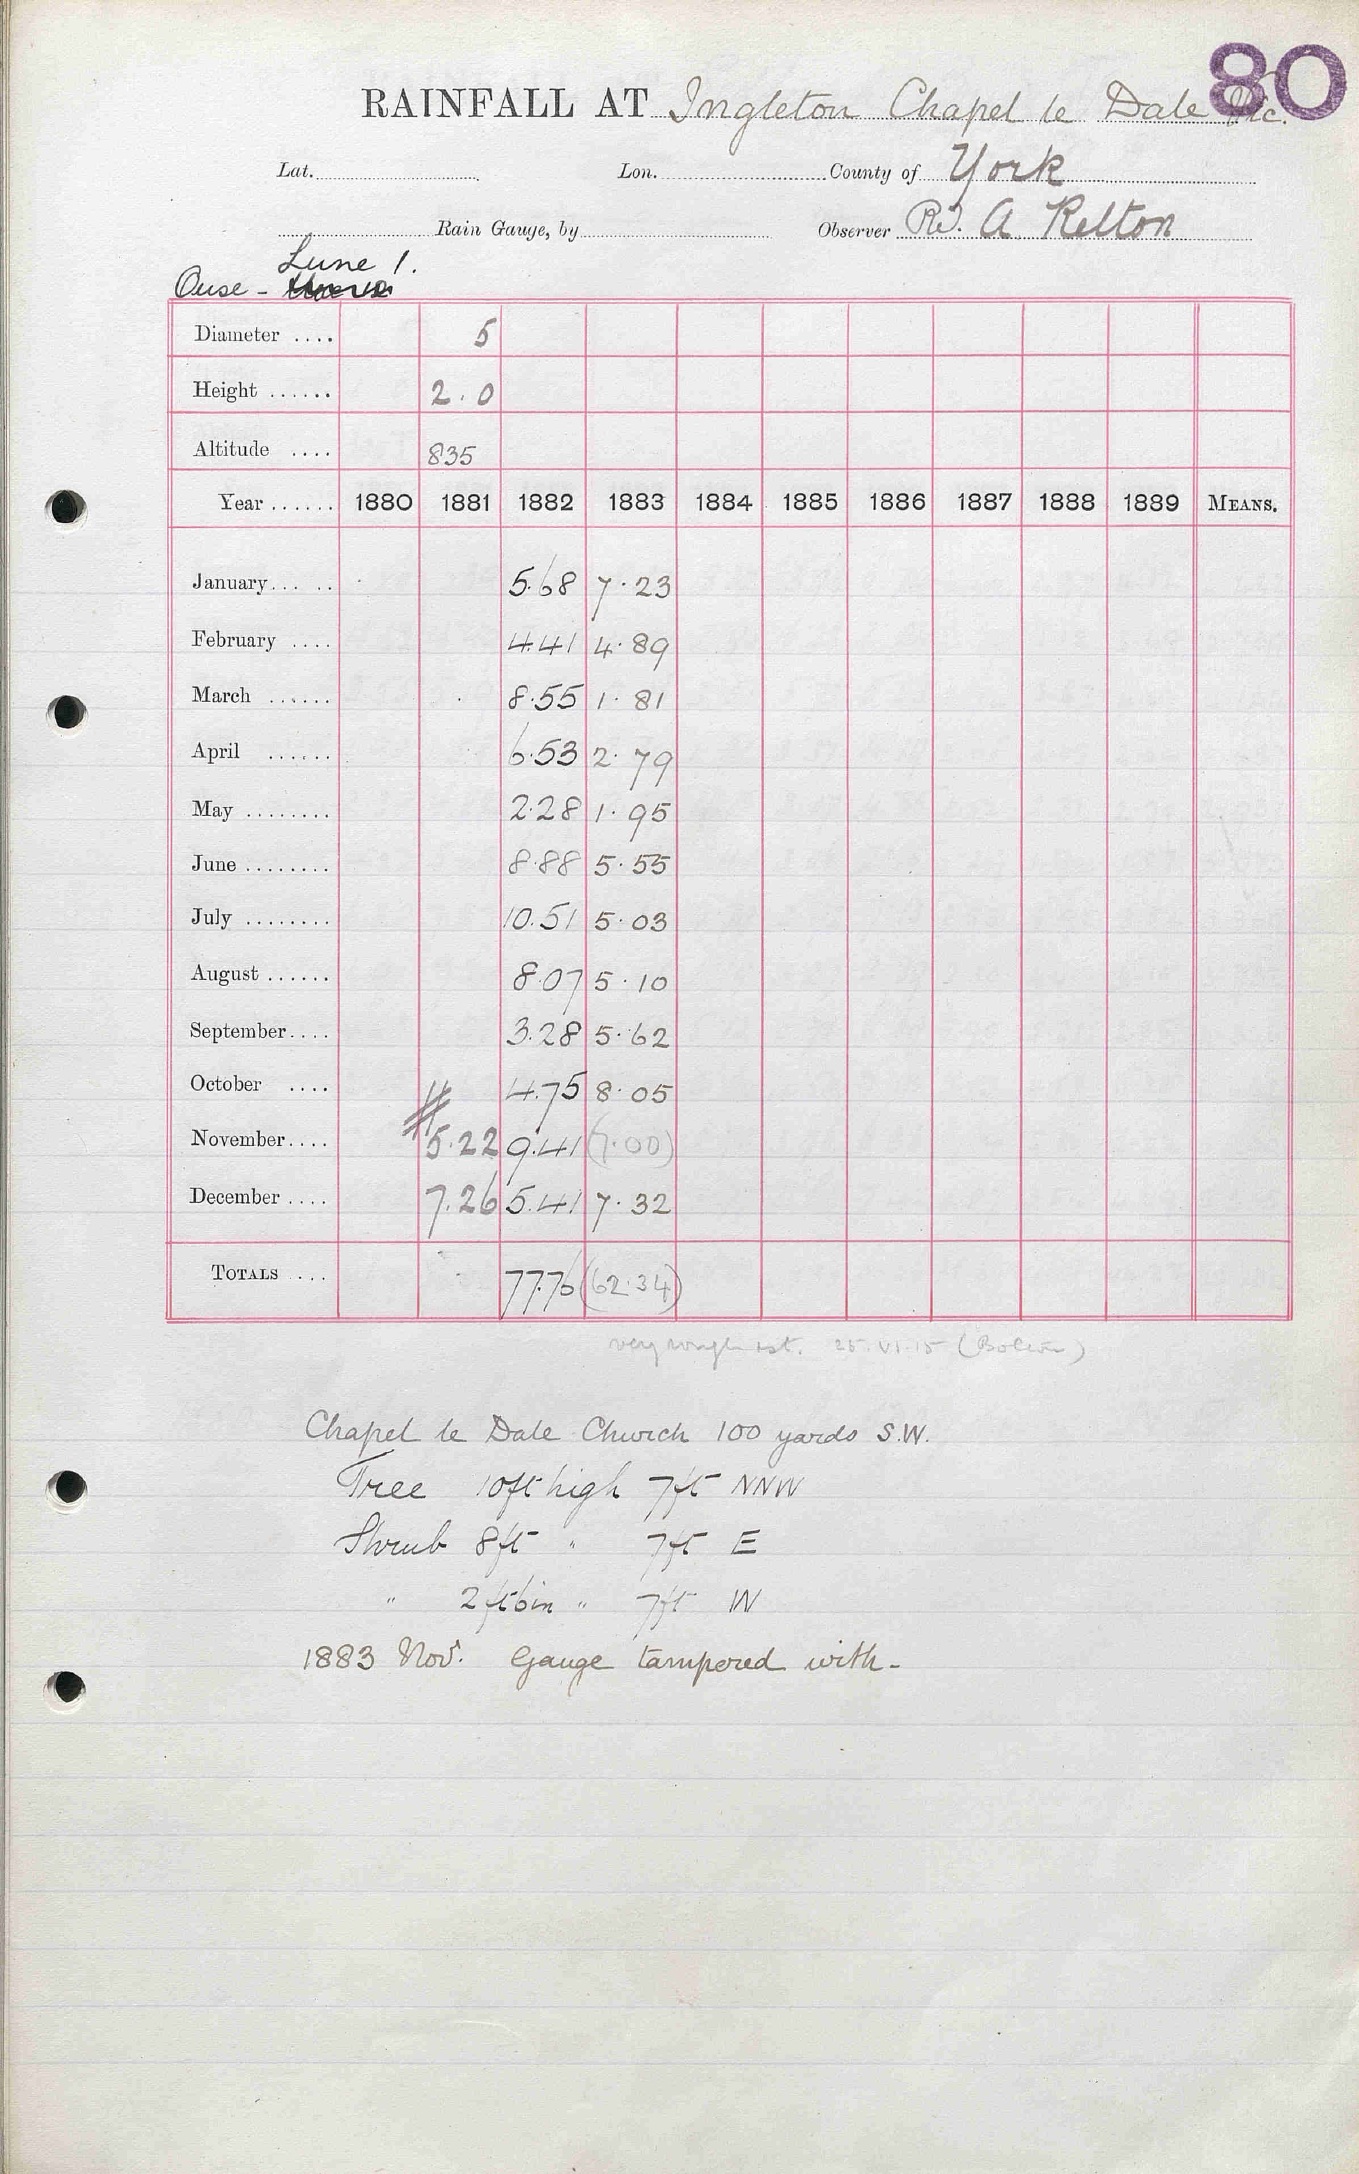 80
RAINFALL AT Ingleton Chapel le Dale Vic.
Lat. Lon. County of York
Rain Gauge, by Observer Rev. A Relton
Lune 1.
Ouse -
Diameter .... 5
Height ...... 2.0
Altitude .... 835
Year ...... 1880 1881 1882 1883 1884 1885 1886 1887 1888 1889 MEANS.
January... .. 5.68 7.23
February .... 4.41 4.89
March ...... 8.55 1.81
April ...... 6.53 2.79
May ........ 2.28 1.95
June ........ 8.88 5.55
July ........ 10.51 5.03
August ...... 8.07 5.10
September.... 3.28 5.62
October .... 4.75 8.05
November.... 5.22 9.41 (7.00)
December .... 7.26 5.41 7.32
TOTALS .... 77.76 (62.34)
very rough est. 25.VI.15 (Bolton)
Chapel le Dale Church 100 yards S.W.
Tree 10ft high 7ft NNW
Shrub 8ft " 7ft E
" 2ft 6in " 7ft W
1883 Nov. Gauge tampered with-